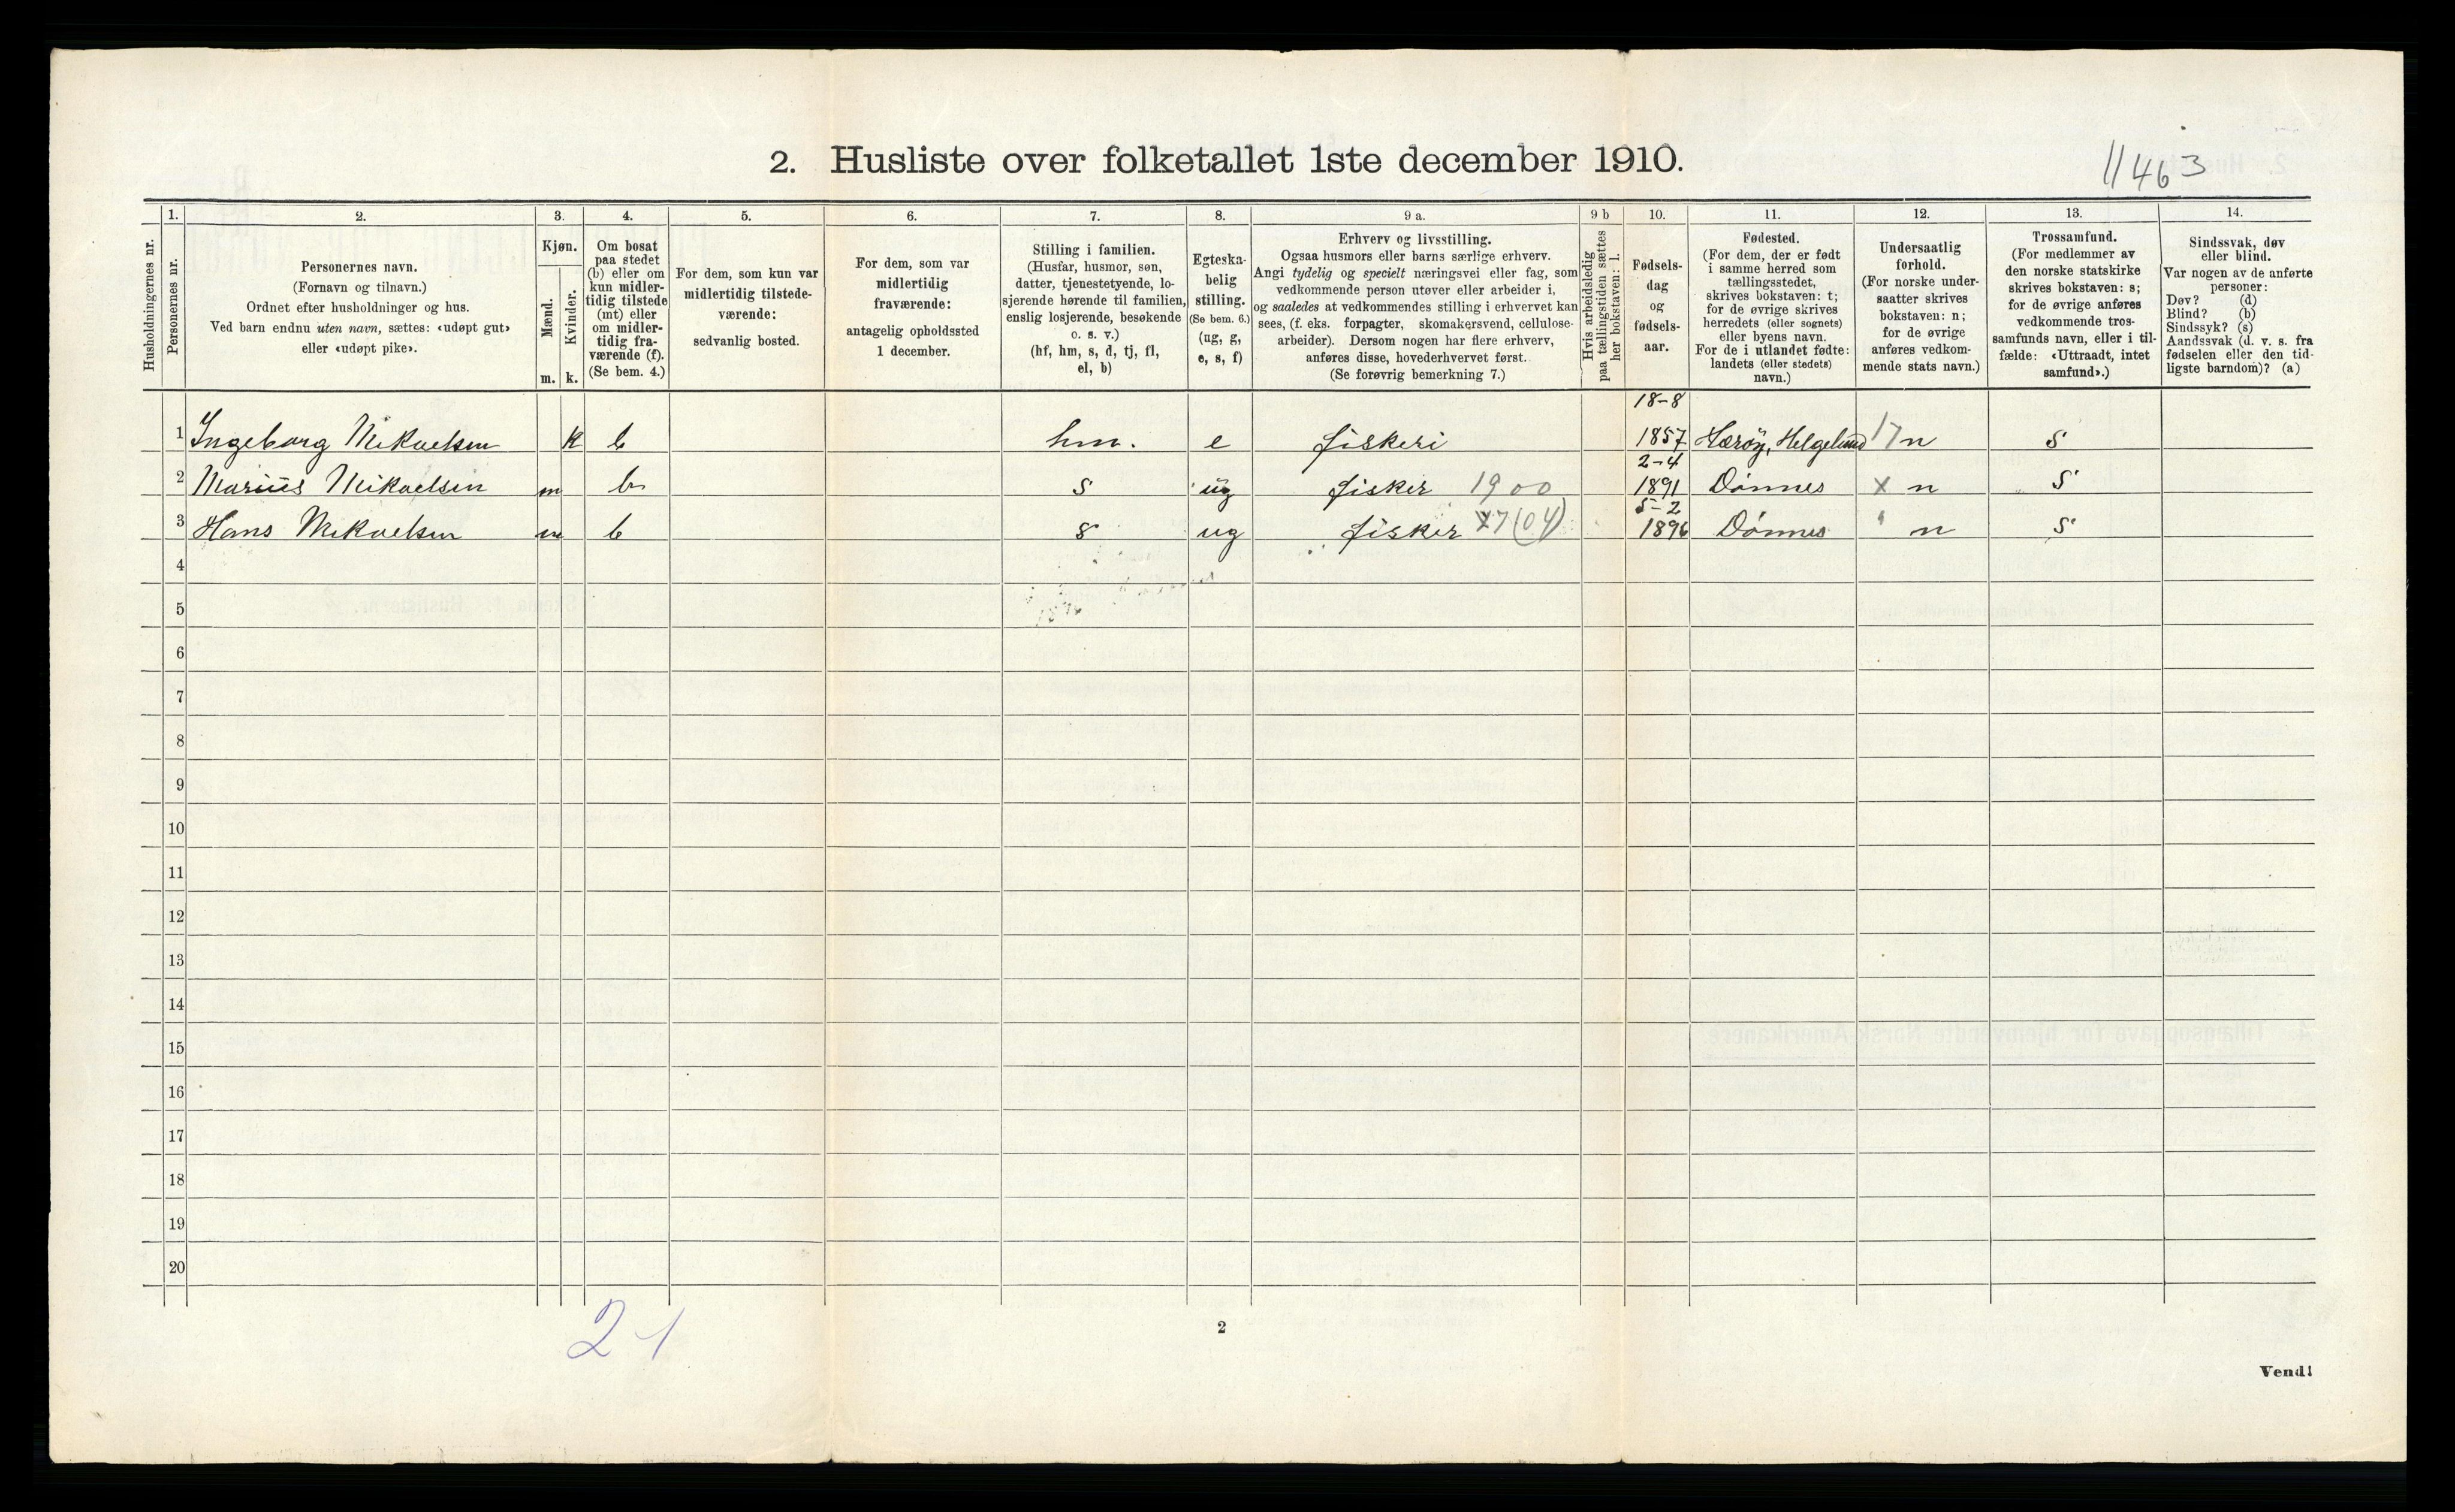 2. Husliste over folketallet 1ste december 1910.
11463
Husholdningernes nr.
1.
Personernes nr.
2.
Personernes navn.
(Fornavn og tilnavn.)
Ordnet efter husholdninger og hus.
Ved barn endnu uten navn, sættes: «udøpt gut»
eller «udøpt pike».
3.
Kjøn.
Mænd.
Kvinder.
m. k.
4.
Om bosat
paa stedet
(b) eller om
kun midler-
tidig tilstede
(mt) eller
om midler-
tidig fra-
værende (f).
(Se bem. 4.)
5.
For dem, som kun var
midlertidig tilstede-
værende:
sedvanlig bosted.
6.
For dem, som var
midlertidig
fraværende:
antagelig opholdssted
1 december.
7.
Stilling i familien.
(Husfar, husmor, søn,
datter, tjenestetyende, lo-
sjerende hørende til familien,
enslig losjerende, besøkende
o. s. v.)
(hf, hm, s, d, tj, fl,
el, b)
8.
Egteska-
belig
stilling.
(Se bem. 6.)
(ug, g,
e, s, f)
9 a.
Erhverv og livsstilling.
Ogsaa husmors eller barns særlige erhverv.
Angi tydelig og specielt næringsvei eller fag, som
vedkommende person utøver eller arbeider i,
og saaledes at vedkommendes stilling i erhvervet kan
sees, (f. eks. forpagter, skomakersvend, cellulose-
arbeider). Dersom nogen har flere erhverv,
anføres disse, hovederhvervet først.
(Se forøvrig bemerkning 7.)
9 b
Hvis arbeidsledig
paa tællingstiden sættes
her bokstaven: l.
10.
Fødsels-
dag
og
fødsels-
aar.
11.
Fødested.
(For dem, der er født
i samme herred som
tællingsstedet,
skrives bokstaven: t;
for de øvrige skrives
herredets (eller sognets)
eller byens navn.
For de i utlandet fødte:
landets (eller stedets)
navn.)
12.
Undersaatlig
forhold.
(For norske under-
saatter skrives
bokstaven: n;
for de øvrige
anføres vedkom-
mende stats navn.)
13.
Trossamfund.
(For medlemmer av
den norske statskirke
skrives bokstaven: s;
for de øvrige anføres
vedkommende tros-
samfunds navn, eller i til-
fælde: «Uttraadt, intet
samfund».)
14.
Sindssvak, døv
eller blind.
Var nogen av de anførte
personer:
Døv? (d)
Blind? (b)
Sindssyk? (s)
Aandssvak (d. v. s. fra
fødselen eller den tid-
ligste barndom)? (a)
18-8
1 Ingeborg Mikaelsen k b hm. e fiskeri 1857 Herøy, Helgeland 17 n s
2-4
2 Marius Mikaelsen m b s ug fisker 1900 1891 Dönnes x n s
5-2
3 Hans Mikaelsen m b s ug fisker x7(04) 1896 Dönnes " n s
4
5
6
7
8
9
10
11
12
13
14
15
16
17
18
19
20
2 1
2
Vend!